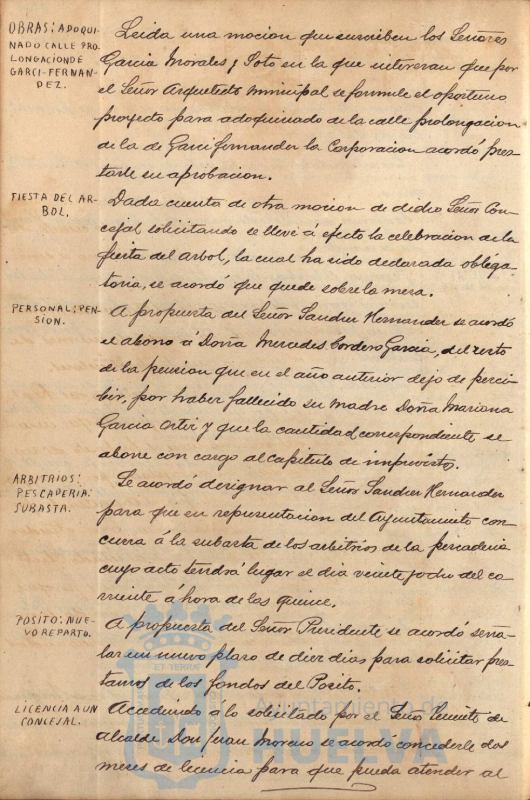 OBRAS: ADOQUI
NADO CALLE PRO
LONGACION DE
GARCI-FERNAN-
DEZ.
Leida una mocion que suscriben los Señores
Garcia Morales y Soto en la que interesan que por
el Señor Arquitecto municipal se formule el oportuno
proyecto para adoquinado de la calle prolongacion
de la de Garcifernandez la Corporacion acordó pres-
tarle su aprobacion.
FIESTA DEL AR-
BOL.
Dada cuenta de otra mocion de dicho Señor Con-
cejal solicitando se lleve á efecto la celebracion de la
fiesta del Arbol, la cual ha sido declarada obliga-
toria, se acordó que quede sobre la mesa.
PERSONAL; PEN-
SION.
A propuesta del Señor Sanchez Hernandez se acordó
el abono á Doña Mercedes Cordero Garcia, del resto
de la pension que en el año anterior dejó de perci-
bir, por haber fallecido su madre Doña Mariana
Garcia Ortiz y que la cantidad correspondiente se
abone con cargo al capitulo de imprevisto.
ARBITRIOS:
PESCADERIA:
SUBASTA.
Se acordó designar al Señor Sanchez Hernandez
para que en representacion del Ayuntamiento con-
curra á la subasta de los arbitrios de la pescaderia
cuyo acto tendrá lugar el dia veinte y ocho del co-
rriente á hora de las quince.
POSITO: NUE-
VO REPARTO.
A propuesta del Señor Presidente se acordó seña-
lar un nuevo plazo de diez dias para solicitar pres-
tamos de los fondos del Posito.
LICENCIA A UN
CONCEJAL.
Accediendo á lo solicitado por el Señor Teniente de
Alcalde Don Juan Moreno se acordó concederle dos
meses de licencia para que pueda atender al
Ayuntamiento de
HUELVA